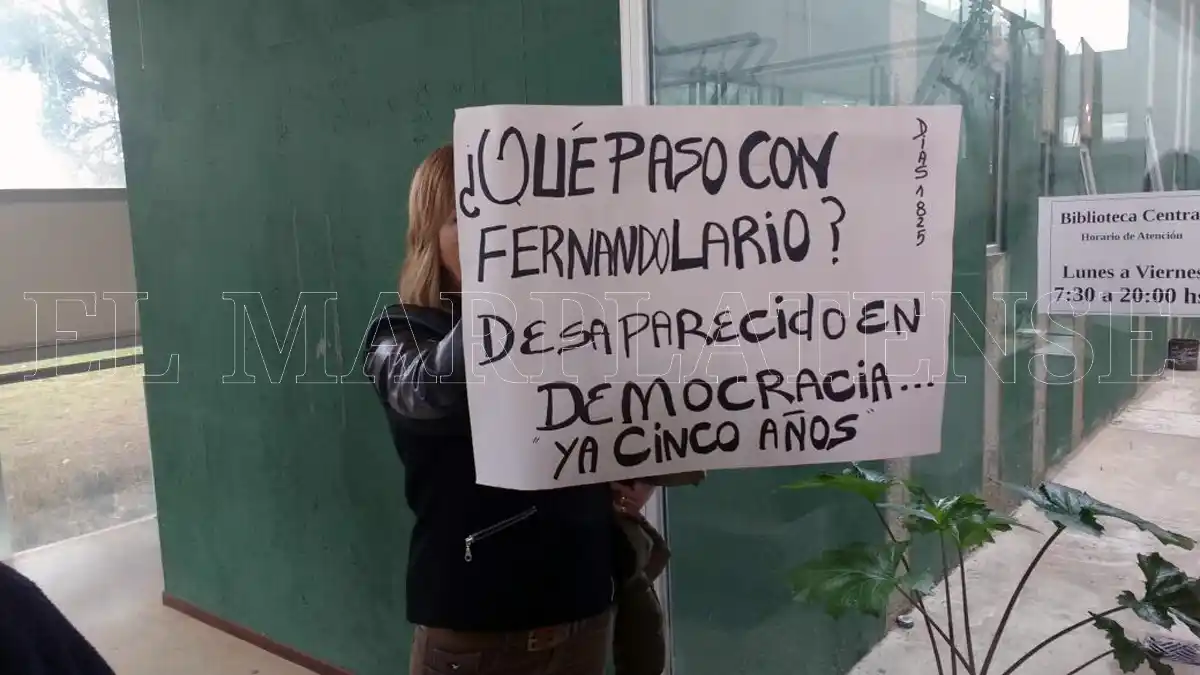 ¿QUÉ PASO CON
FERNANDO LARIO?
DESAPARECIDO EN
DEMOCRACIA...
"YA CINCO AÑOS"
DIAS 1825
Biblioteca Centra
Horario de Atención
Lunes a Viernes
7:30 a 20:00 h
EL MARPLATENSE